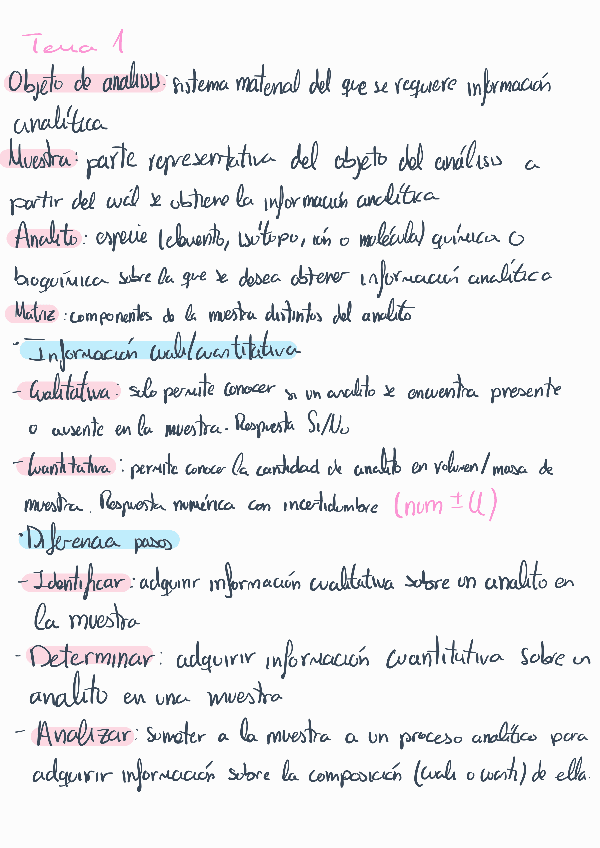 Tema 1
Objeto de analisis: sistema material del que se requiere información
analítica
Muestra: parte representativa del objeto del análisis a
partir del cuál se obtiene la información analítica
Analito: especie (elemento, isótopo, ión o molécula) química o
bioquímica sobre la que se desea obtener información analítica
Matriz: componentes de la muestra distintos del analito
· Información cuali/cuantitativa
- Cualitativa: solo permite conocer si un analito se encuentra presente
o ausente en la muestra. Respuesta Si/No
- Cuantitativa: permite conocer la cantidad de analito en volumen/masa de
muestra. Respuesta numérica con incertidumbre (num ± U)
· Diferencia pasos
- Identificar: adquirir información cualitativa sobre un analito en
la muestra
- Determinar: adquirir información cuantitutiva sobre un
analito en una muestra
- Analizar: someter a la muestra a un proceso analítico para
adquirir información sobre la composición (cuali o cuanti) de ella.